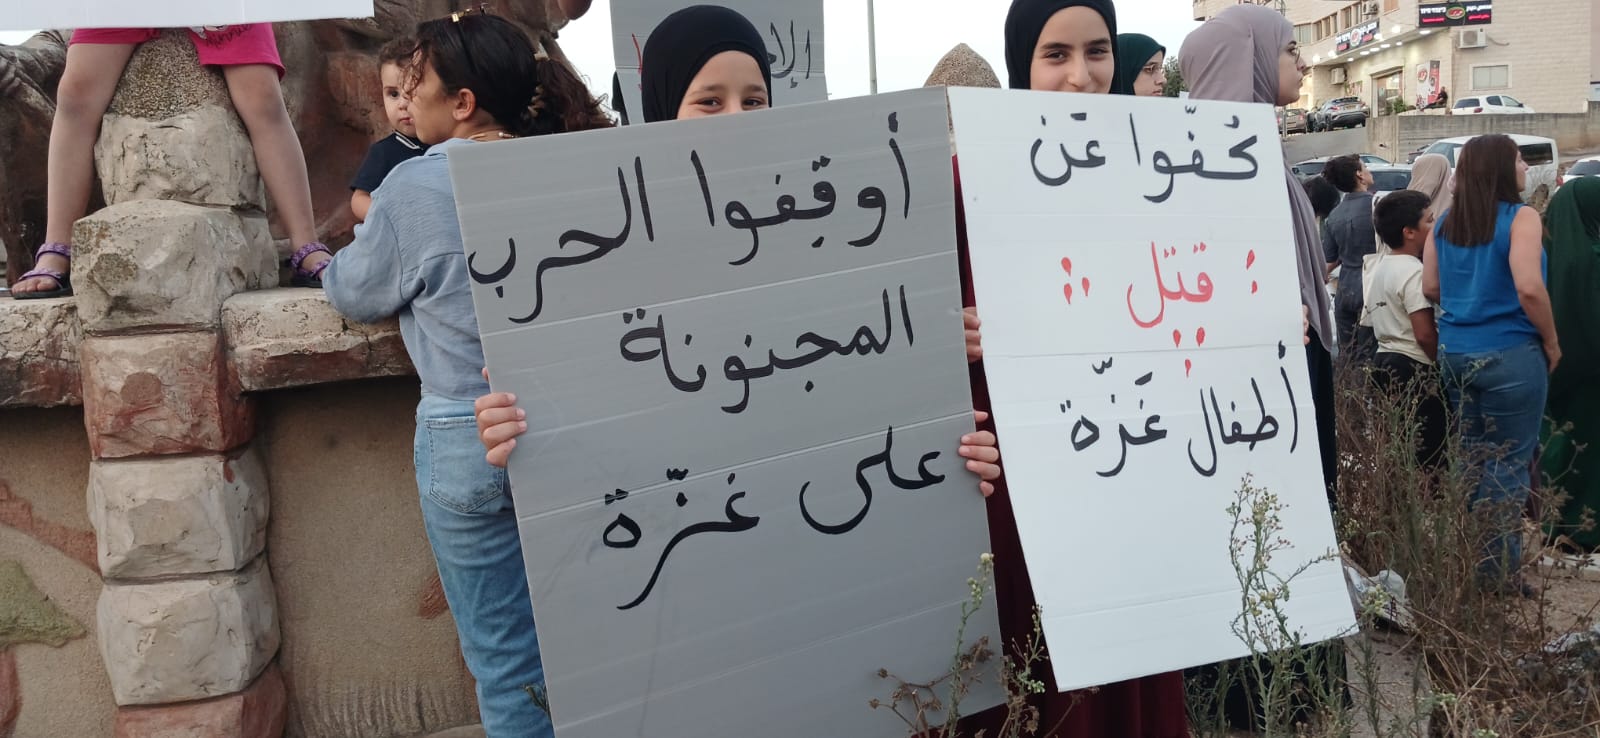 أوقِفوا الحرب
المجنونة
على غزّة
كُفّوا عَن
قتل
أطفال غَزّة